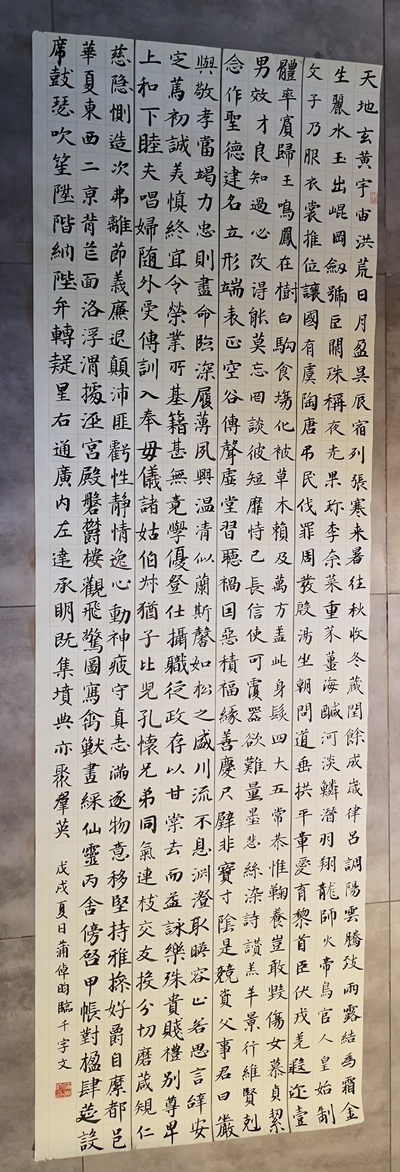 天地玄黃宇宙洪荒日月盈昃辰宿列張寒来暑往秋收冬藏閏餘成歲律呂調陽雲騰致雨露結為霜金
生麗水玉出崐岡劔號巨闕珠稱夜光果珎李柰菜重芥薑海鹹河淡鱗潛羽翔龍師火帝鳥官人皇始制
文字乃服衣裳推位讓國有虞陶唐弔民伐罪周發殷湯坐朝問道垂拱平章愛育黎首臣伏戎羌遐迩壹
體率賓歸王鳴鳳在樹白駒食場化被草木賴及萬方盖此身髮四大五常恭惟鞠養豈敢毀傷女慕貞絜
男效才良知過必改得能莫忘罔談彼短靡恃己長信使可覆器欲難量墨悲絲染詩讚羔羊景行維賢剋
念作聖德建名立形端表正空谷傳聲虛堂習聽禍因惡積福緣善慶尺璧非寶寸陰是競資父事君曰嚴
與敬孝當竭力忠則盡命臨深履薄夙興溫清似蘭斯馨如松之盛川流不息淵澄取暎容止若思言辭安
定篤初誠美慎終宜令榮業所基籍甚無竟學優登仕攝職從政存以甘棠去而益詠樂殊貴賤禮別尊卑
上和下睦夫唱婦随外受傅訓入奉母儀諸姑伯叔猶子比兒孔懷兄弟同氣連枝交友投分切磨箴規仁
慈隐惻造次弗離節義廉退顛沛匪虧性靜情逸心動神疲守真志滿逐物意移堅持雅操好爵自縻都邑
華夏東西二京背芒面洛浮渭據涇宮殿磐鬱樓觀飛驚圖寫禽獸畫綵仙靈丙舍傍啓甲帳對楹肆筵設
席鼓瑟吹笙陞階納陛弁轉疑星右通廣內左達承明既集墳典亦聚羣英
戊戌夏日蕭倬昀臨千字文